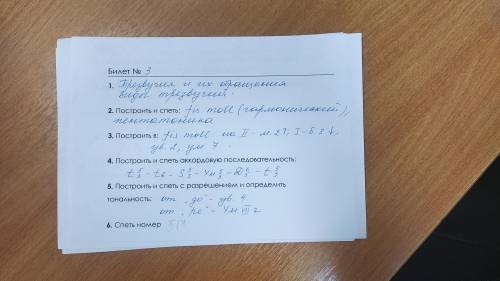 Билет № 3
1. Трезвучия и их обращения
виды трезвучий.
2. Построить и спеть: fis moll (гармонический),
пентатоника
3. Построить в: fis moll на II - м 2↑; I - б 3 ↓;
ув. 2, ум 7.
4. Построить и спеть аккордовую последовательность:
5. Построить и спеть с разрешением и определить
тональность: от "до" - ув. 4
от "ре" - Ум VII 7
6. Спеть номер